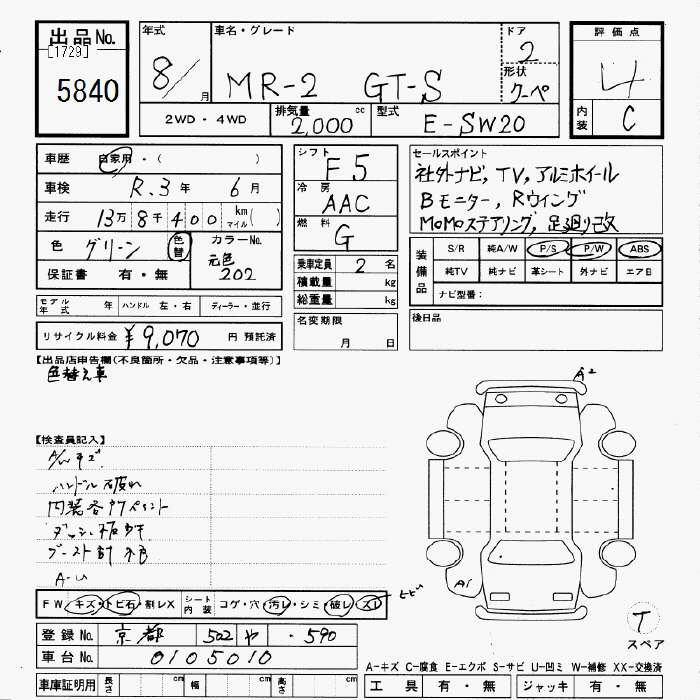 出品No.
[1729]
5840
年式
8/
月
車名・グレード
MR-2 GT-S
ドア
2
形状
クーペ
評価点
4
内装
C
2WD・4WD
排気量
2,000
cc
型式
E-SW20
車歴 自家用・( )
車検 R.3年 6月
走行 13万8千400 km マイル( )
色 グリーン 色替
カラーNo.
元色
202
保証書 有・無
シフト
F5
冷房
AAC
燃料
G
乗車定員 2 名
積載量 kg
総重量 kg
セールスポイント
社外ナビ, TV, アルミホイール
Bモニター, Rウィング
MOMOステアリング, 足廻り改
装備品
S/R 純A/W P/S P/W ABS
純TV 純ナビ 革シート 外ナビ エアB
ナビ型番:
モデル年式 年 ハンドル 左・右 ディーラー・並行
リサイクル料金 ¥9,070 円 預託済
名変期限
月 日
後日品
【出品店申告欄(不良箇所・欠品・注意事項等)】
色替え車
【検査員記入】
A/Wキズ
ハンドル破れ
内装各所ペイント
ダッシュ板
ブースト計 不良
A-U
A2
A1
FW キズ・トビ石・割レX シート内装 コゲ・穴・汚レ・シミ・破レ・スレ
登録No. 京都 502 や ・590
車台No. 0105010
車庫証明用 長さ cm 幅 cm 高さ cm
T
スペア
A-キズ C-腐食 E-エクボ S-サビ U-凹ミ W-補修 XX-交換済
工具 有・無 ジャッキ 有・無